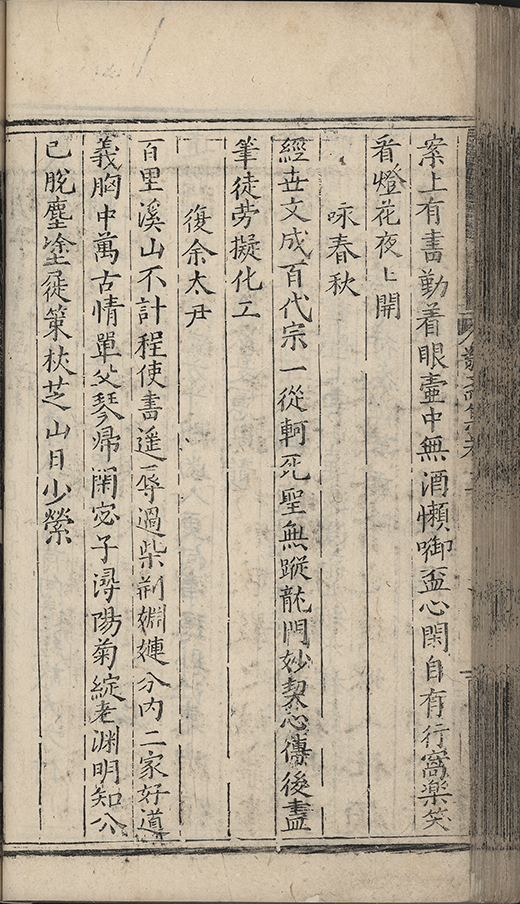 案上有書勤着眼壷中無酒懶啣盃心閑自有行窩楽笑
看燈花夜上開
咏春秋
經世文成百代宗一從軻死聖無蹤龍門妙契心傳後盡
筆徒勞擬化工
復余太尹
百里溪山不計程使書遥辱過柴荊婣嫌分内二家好道
義胸中萬古情單父琴帰閑宓子潯陽菊綻老渊明知公
已脫塵塗屣策杖芝山日少縈